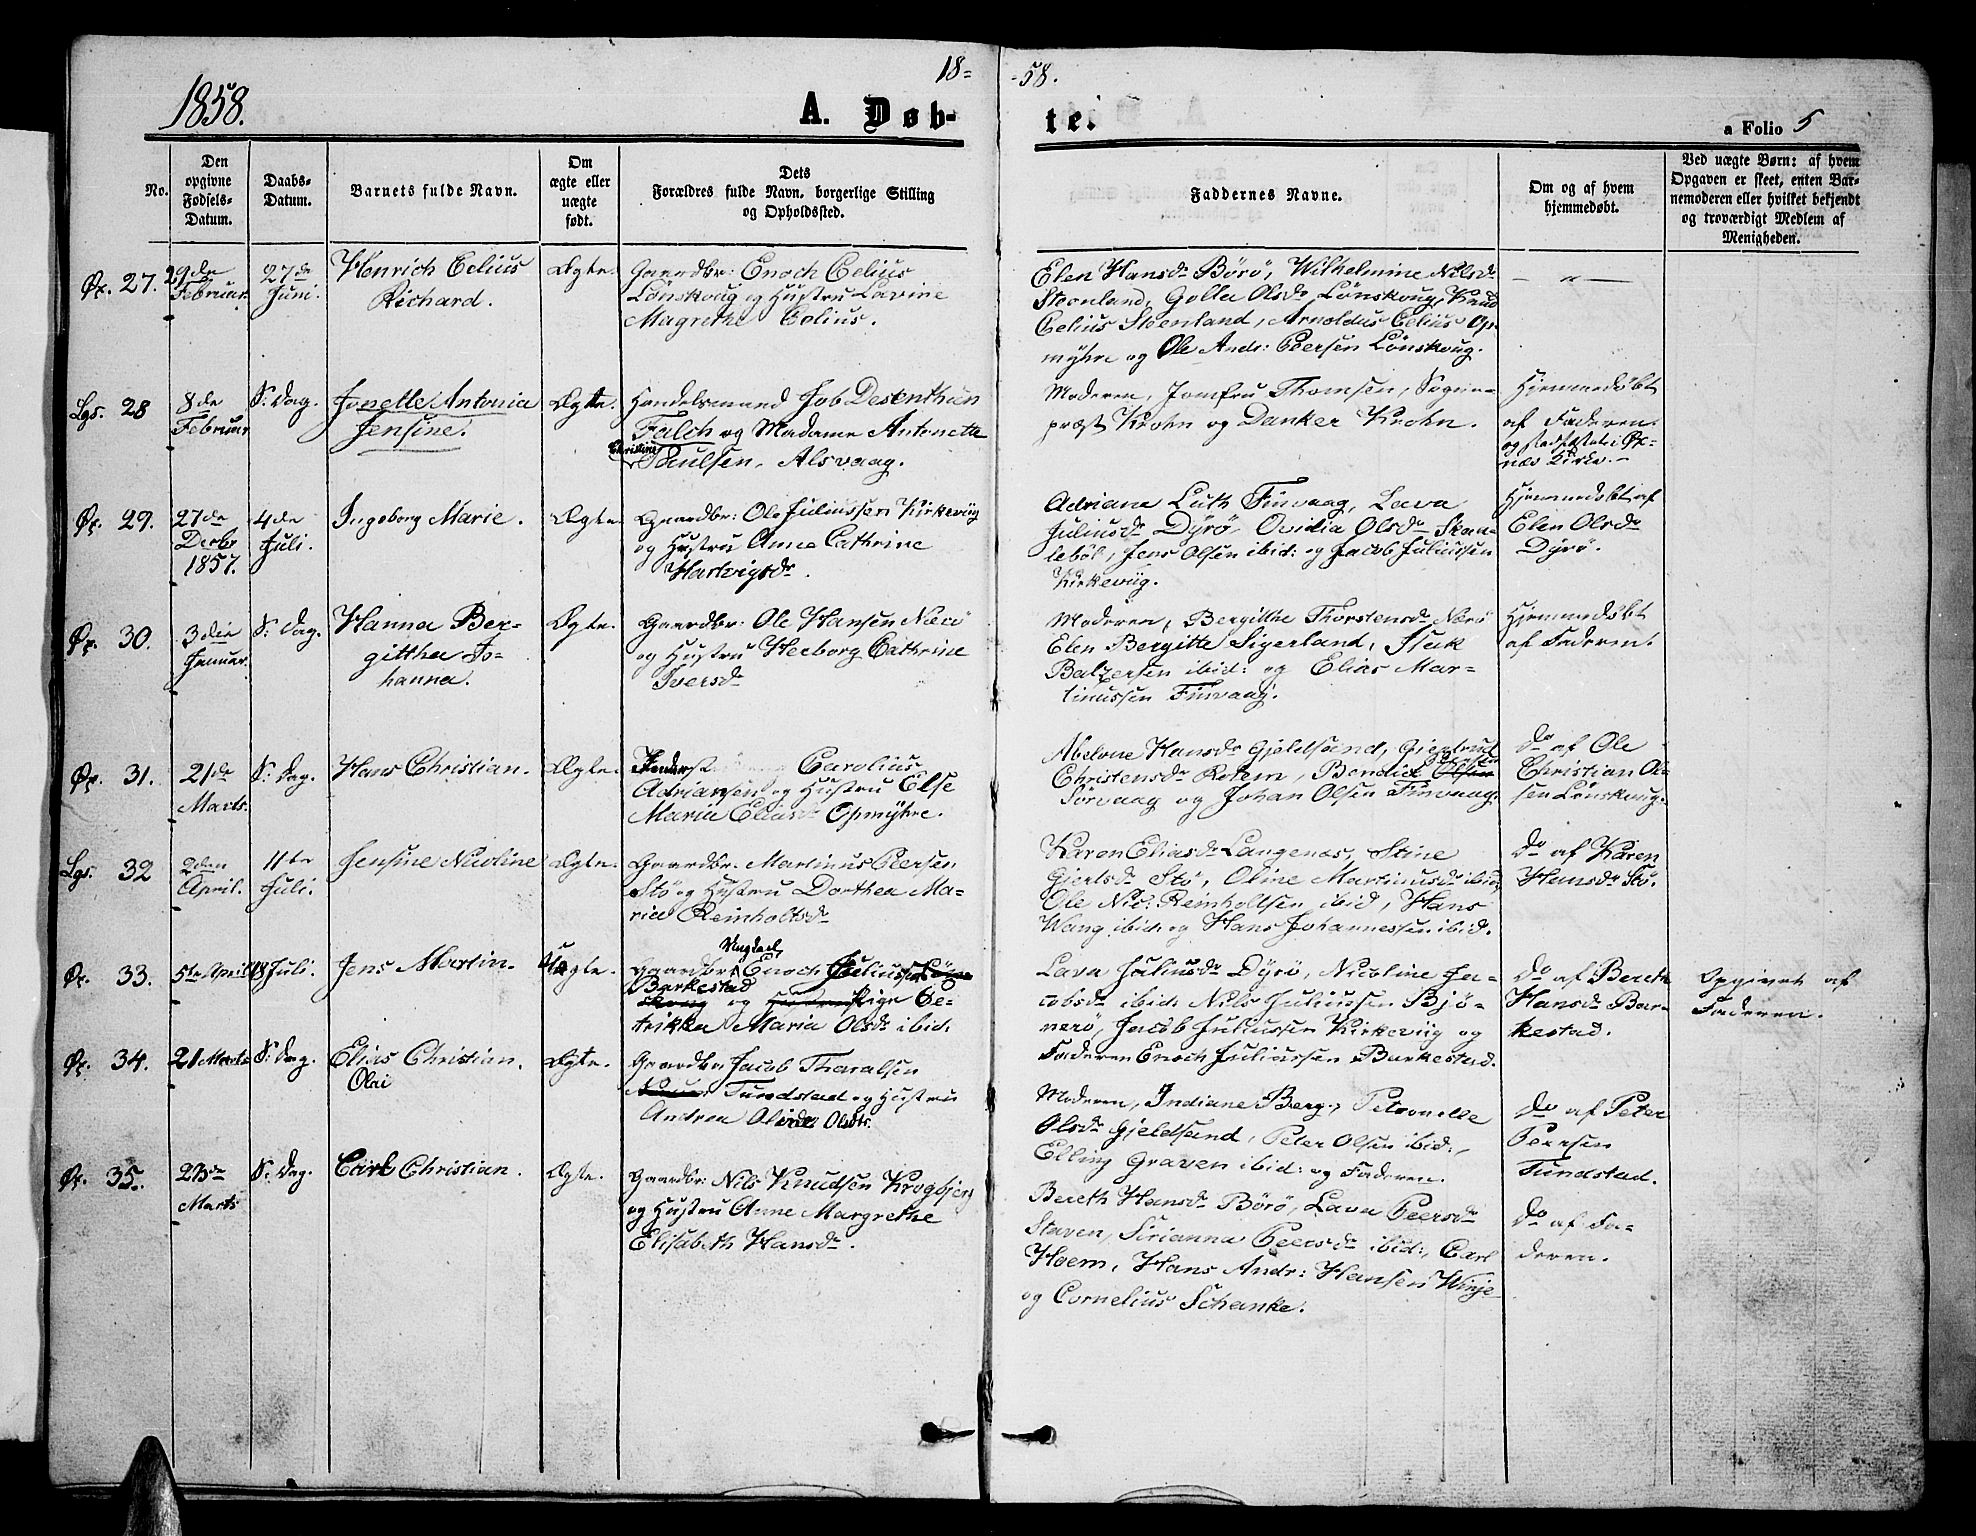 18=
-58.
1858.
A. Døb-
te.
a Folio 5
No.
Den
opgivne
Fødsels-
Datum.
Daabs-
Datum.
Barnets fulde Navn.
Om
ægte eller
uægte
født.
Dets
Forældres fulde Navn, borgerlige Stilling
og Opholdssted.
Faddernes Navne.
Om og af hvem
hjemmedøbt.
Ved uægte Børn: af hvem
Opgaven er skeet, enten Bar-
nemoderen eller hvilket bekjendt
og troværdigt Medlem af
Menigheden.
Øx. 27.
Februar.
27de
Juni.
Henrich Celius
Richard.
Ægte.
Gaardbr: Enoch Celius
Lønskoug og Hustru Lavine
Magrethe Celius.
Elen Hansdr Börö, Wilhelmine Nilsdr
Steenland, Golla Olsdr Lönskoug, Knud
Celius Steenland, Arnoldus Celius Op-
myhre og Ole Andr: Peersen Lönskoug.
— „ —
Lgs. 28
8de
Februar
S: Dag.
Jonelle Antonia
Jensine.
Ægte.
Handelsmand Job Desenthun
Falch og Madame Antonette
Christine
Paulsen, Alsvaag.
Moderen, Jomfru Thomsen, Sogne-
præst Krohn og Danker Krohn.
Hjemmedøbt
af Faderen
og stadfæstet i Øx-
næs Kirke.-
Øx. 29.
27de
Decbr
1857.
4de
Juli.
Ingeborg Marie.
Ægte.
Gaardbr: Ole Juliussen Kirkeviig
og Hustru Anne Cathrine
Hartvigsdr.
Adriane Luth Finvaag, Lava
Juliusdr Dyrö, Ovidia Olsdr Skon-
leböl, Jens Olsen ibid: og Jacob Juliussen
Kirkeviig.
Hjemmedøbt af
Elen Olsdr
Dyrö.
Øx. 30.
3die
Januar.
S: Dag.
Hanna Ber-
gitthea Jo-
hanna.
Ægte.
Gaardbr: Ole Hansen Nærö
og Hustru Heeborg Cathrine
Iversdr
Moderen, Bergitthe Thorstensdr Nærö
Elen Bergitte Sigerland,
Baltzersen ibid: og Elias Mar-
tinussen Finvaag.
Hjemmedøbt
af Faderen.
Øx. 31.
21de
Marts.
S: Dag.
Hans Christian.
Ægte.
Inderst Carolius
Adriansen og Hustru Else
Maria Eliasdr Opmyhre.
Abelone Hansdr Gjeldsand, Gjertrud
Christensdr Rohem, Bendict Olsen
Sörvaag og Johan Olsen Finvaag.
Do af Ole
Christian Ol-
sen Lönskoug.
Lgs. 32
2den
April.
11te
Juli.
Jensine Nicoline
Ægte.
Gaardbr: Martinus Peersen
Stö og Hustru Dorthea Ma-
ria Reinholtsdr
Karen Eliasdr Langenæs, Stine
Gjertsdr Stö, Oline Martinusdr ibid,
Ole Nic: Reinholtsen ibid, Hans
Wang ibid: og Hans Johannessen ibid.
Do af Karen
Hansdr Stö.
Øx. 33.
5te April
18 Juli.
Jens Martin.
Uægte.
Ungkarl
Gaardbr: Enoch Juliussen Løn-
Barkestad
skoug og Hustru Pige Pe-
trikka Maria Olsdr ibid:
Lava Juliusdr Dyrö, Nicoline Ja-
cobsdr ibid: Nils Juliussen Bjö-
nerö, Jacob Juliussen Kirkeviig og
Faderen Enoch Juliussen Barkestad.
Do af Bereth
Hansdr Bar-
kestad.
Opgivet af
Faderen.
Øx. 34.
21 Marts
S: Dag.
Elias Christian.
Olai
Ægte.
Gaardbr Jacob Tharalsen
Tundstad og Hustru
Andrea Olsdtr.
Moderen, Indiane Berg, Petronelle
Olsdr Gjeldsand, Peter Olsen ibid:,
Elling Graven ibid: og Faderen.
Do af Peter
Peersen
Tundstad.
Øx. 35.
23de
Marts
S: Dag.
Carl Christian.
Ægte.
Gaardbr: Nils Knudsen Krogbjerg
og Hustru Anne Margrethe
Elisabeth Hansdr.
Bereth Hansdr Börö, Lava Peersdr
Staven, Sirianna Peersdr ibid:, Carl
Hoem, Hans Andr: Hansen Winje
og Cornelius Schanke.
Do af Fa-
deren.